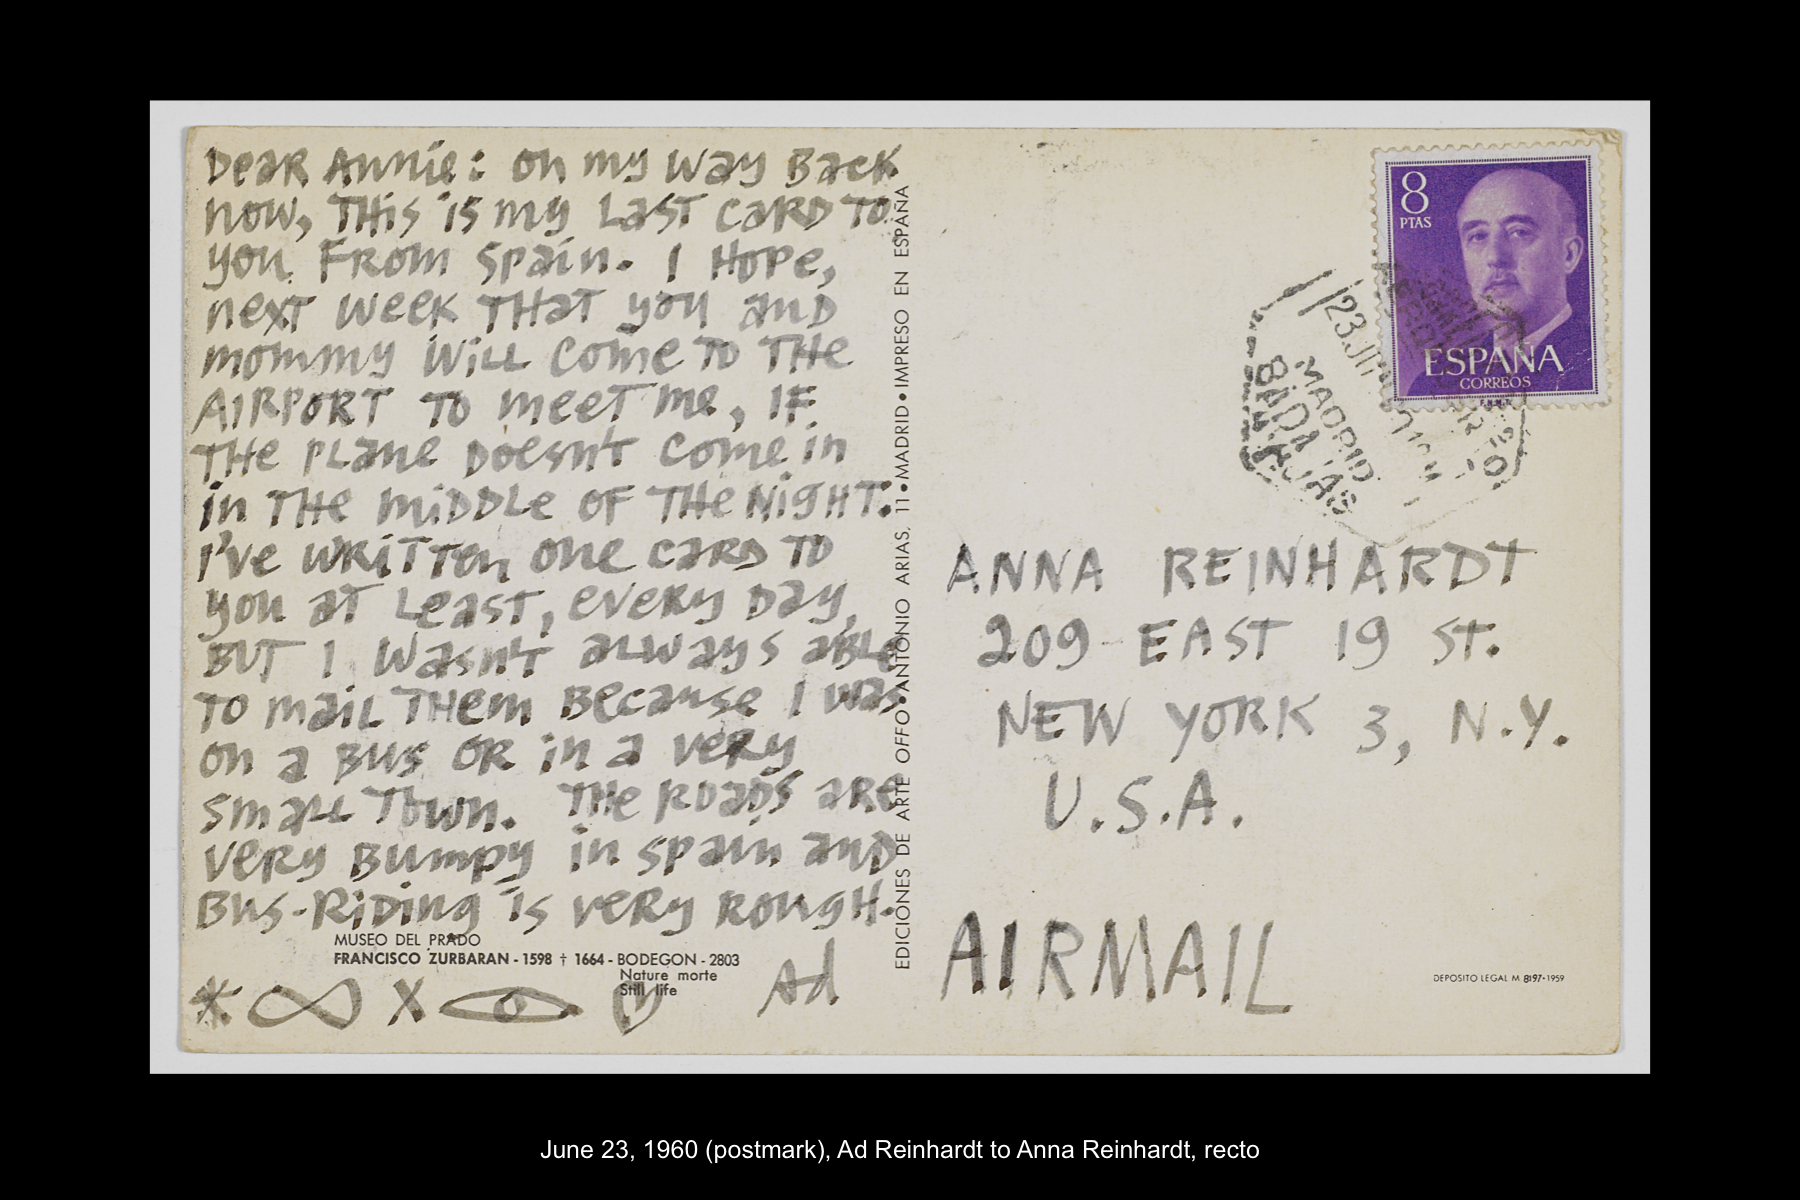 Dear Annie: on my way Back
now, THis is my Last carD to
you From Spain. I Hope,
next week THat you and
mommy will come to THe
AIRPORT TO meet me, IF
THe Plane Doesn't come in
in THe MiDDLe OF THe NigHT.
I've written one carD TO
you aT Least, every Day,
BUT I Wasn't always aBLe
To mail THem Because I was
on a Bus OR in a very
small Town. THe Roads are
very Bumpy in Spain and
Bus-Riding is very rougH.
Ad
MUSEO DEL PRADO
FRANCISCO ZURBARAN - 1598 † 1664 - BODEGON - 2803
Nature morte
Still life
EDICIONES DE ARTE OFFO • ANTONIO ARIAS, 11 • MADRID • IMPRESO EN ESPAÑA
8
PTAS
ESPAÑA
CORREOS
MADRID
BARAJAS
ANNA REINHARDT
209 EAST 19 ST.
NEW YORK 3, N.Y.
U.S.A.
AIRMAIL
DEPOSITO LEGAL M. 8197-1959
June 23, 1960 (postmark), Ad Reinhardt to Anna Reinhardt, recto